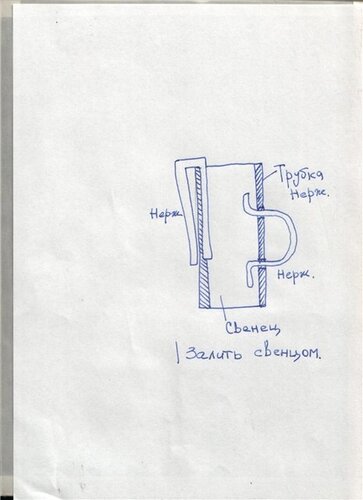 Трубка
Нерж.
Нерж.
Нерж.
Сванец
Залить свенцом.